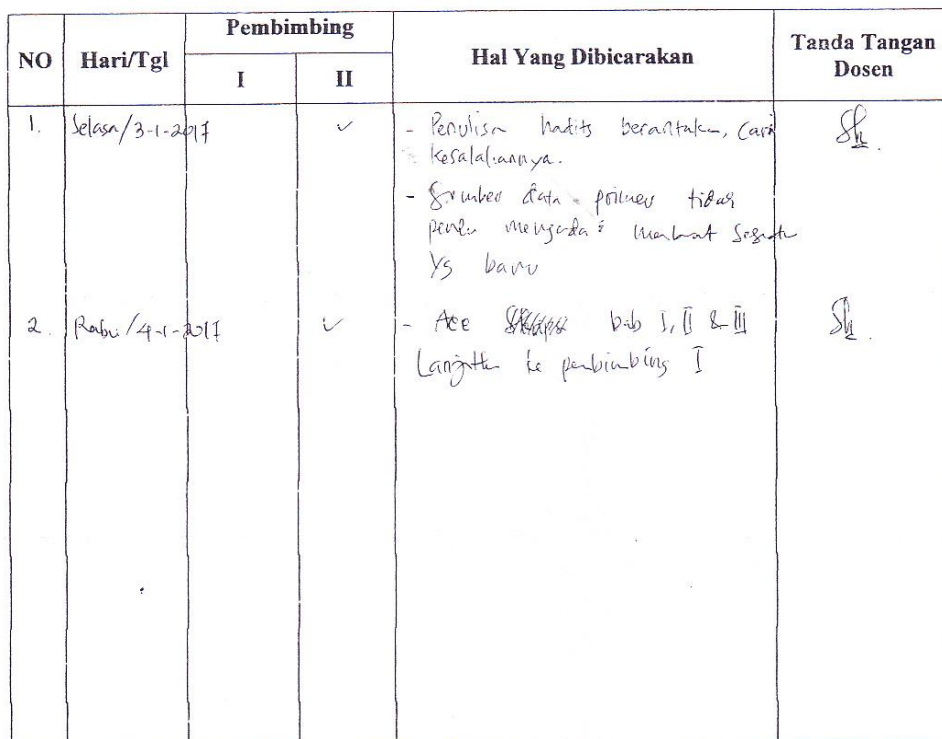 NO Hari/Tgl Pembimbing Hal Yang Dibicarakan Tanda Tangan Dosen
I II
1. Selasa/3-1-2017 ✓ - Penulisn hadits berantakan, cari
kesalahannya.
- Sumber data primer tidak
perlu mengada² membuat sesuatu
yg baru
2. Rabu/4-1-2017 ✓ - Acc bab I, II & III
Lanjutkan ke pembimbing I